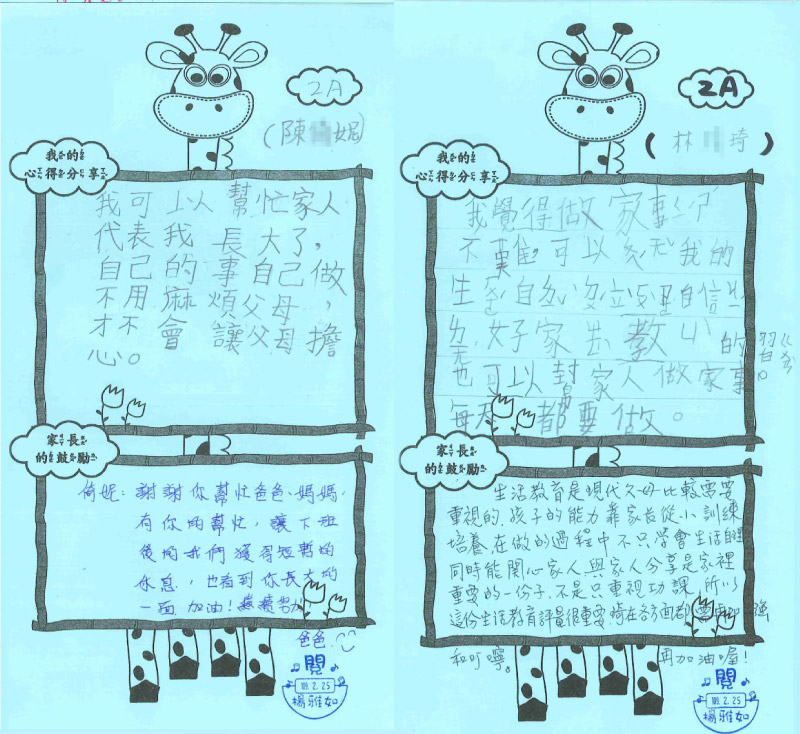 2A
(陳 妮)
我的
心得分享
我可以幫忙家人
代表我長大了,
自己的事自己做
不用麻煩父母,
才不會讓父母擔
心。
家長
的鼓勵
倚妮:謝謝你幫忙爸爸、媽媽.
有你的幫忙,讓下班
後的我們獲得短暫的
休息,也看到你長大的
一面 加油!繼續努力
爸爸
閱
109.2.25
楊雅如
2A
(林 琦)
我的
心得分享
我覺得做家事
不難,可以 我的
生 自 自信
好家 教 的
也可以 家人做家事。
每天都要做。
家長
的鼓勵
生活教育是現代父母比較需要
重視的.孩子的能力靠家長從小訓練
培養在做的過程中不只學會生活自理
同時能關心家人與家人分享是家裡
重要的一份子.不是只重視功課.所以
這份生活教育評量很重要 琦在各方面都需要再加強
和叮嚀。 再加油喔!
閱
109.2.25
楊雅如